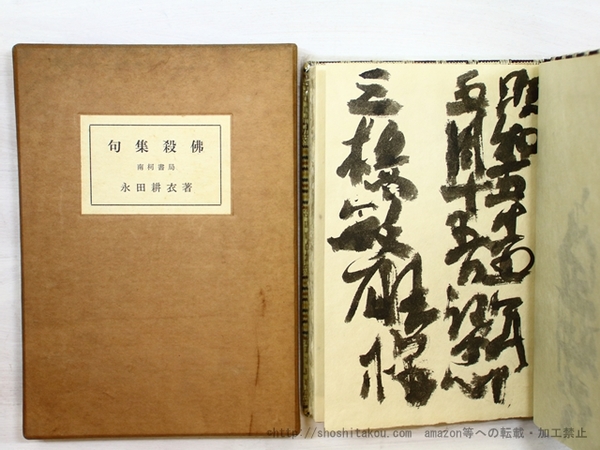 句集殺佛
南柯書局
永田耕衣著
昭和五十
五月十五
三橋敏雄様
http://shoshitakou.com ama2on等への転載・加工禁止